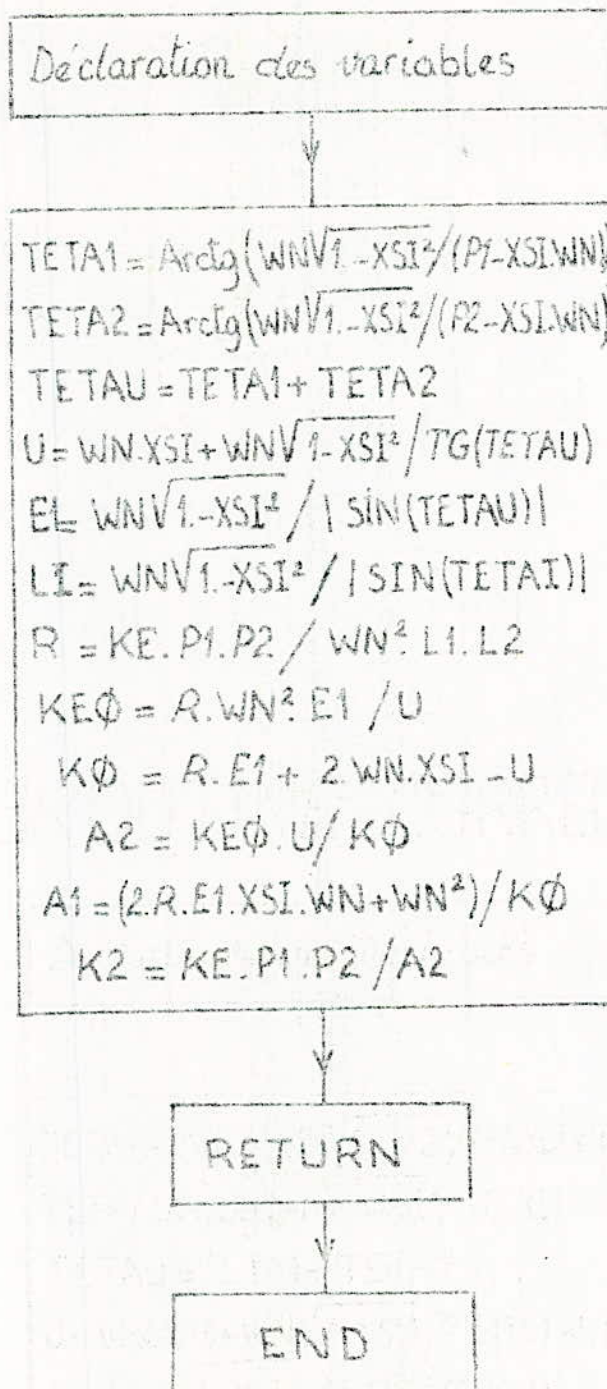 Déclaration des variables
TETA1 = Arctg(WN√1.-XSI²/(P1-XSI.WN)
TETA2 = Arctg(WN√1.-XSI²/(P2-XSI.WN)
TETAU = TETA1 + TETA2
U = WN.XSI + WN√1-XSI² / TG(TETAU)
E1= WN√1.-XSI² / | SIN(TETAU)|
LI = WN√1.-XSI² / | SIN(TETAI)|
R = KE.P1.P2 / WN².L1.L2
KEØ = R.WN².E1 / U
KØ = R.E1 + 2.WN.XSI - U
A2 = KEØ.U / KØ
A1 = (2.R.E1.XSI.WN + WN²) / KØ
K2 = KE.P1.P2 / A2
RETURN
END